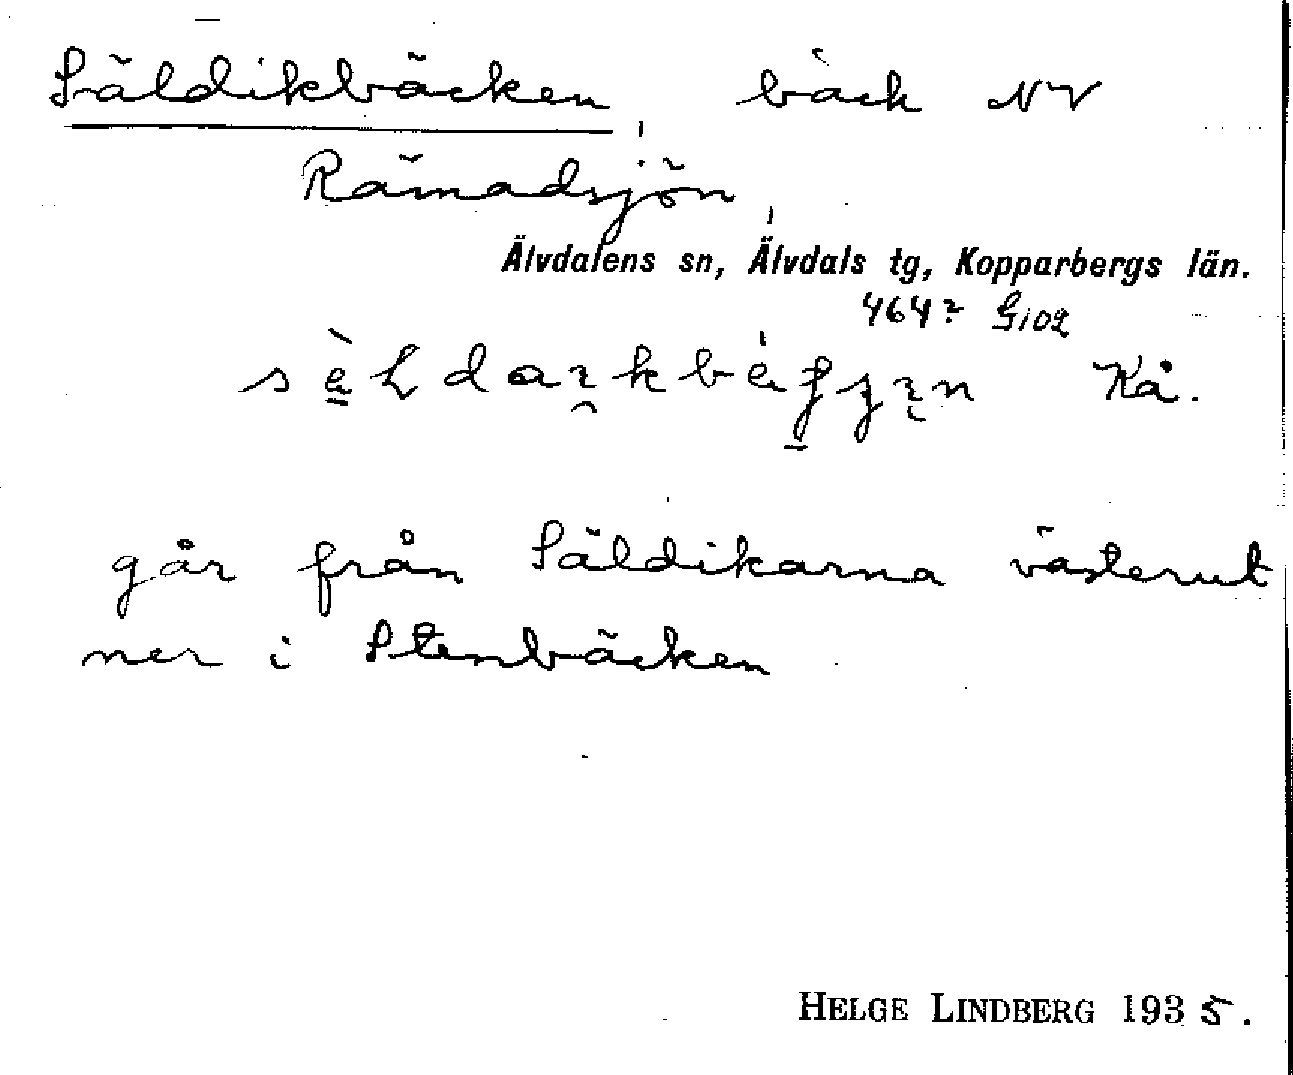 Säldikbäcken, bäck NV
Rämadsjön,
Älvdalens sn, Älvdals tg, Kopparbergs län.
Kå.
går från Säldikarna västerut
ner i Stenbäcken
HELGE LINDBERG 1935.